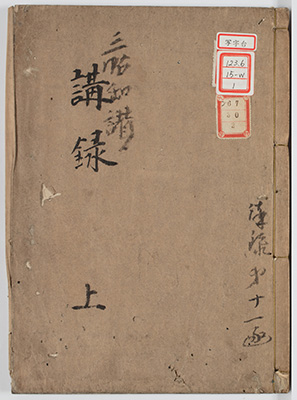 三帖和讃
講録
上
写字台
123.6
15-W
1
第十一